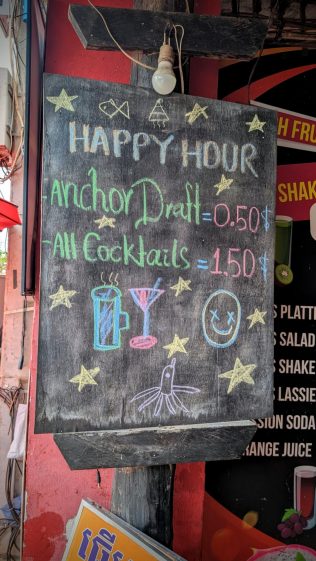 HAPPY HOUR
-Anchor Draft = 0.50 $
-All Cocktails = 1.50 $
H FRU
SHAK
S PLATT
S SALAD
S SHAKE
S LASSIE
SSION SODA
RANGE JUICE